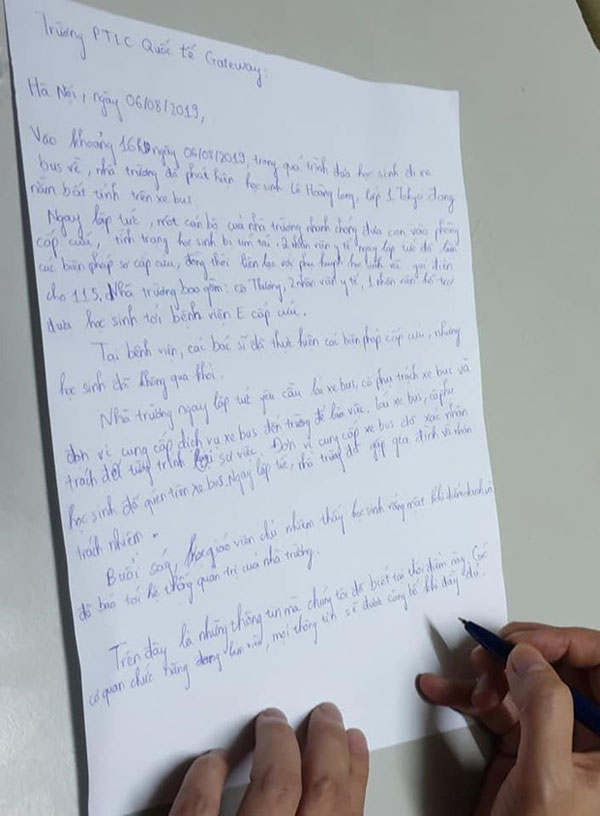 Trường PTLC Quốc tế Gateway:
Hà Nội, ngày 06/08/2019,
Vào khoảng 16h ngày 06/08/2019, trong quá trình đưa học sinh đi xe
bus về, nhà trường đã phát hiện học sinh Lê Hoàng Long, lớp 1 Tokyo đang
nằm bất tỉnh trên xe bus.
Ngay lập tức, một cán bộ của nhà trường nhanh chóng đưa con vào phòng
cấp cứu, tình trạng học sinh bị tím tái. 2 nhân viên y tế ngay lập tức đã
các biện pháp sơ cấp cứu, đồng thời liên lạc với phụ huynh học sinh và gọi điện
cho 115. Nhà trường bao gồm: cô Thương, 2 nhân viên y tế, 1 nhân viên hỗ trợ
đưa học sinh tới bệnh viện E cấp cứu.
Tại bệnh viện, các bác sĩ đã thực hiện các biện pháp cấp cứu, nhưng
học sinh đã không qua khỏi.
Nhà trường ngay lập tức yêu cầu lái xe bus, cô phụ trách xe bus và
đơn vị cung cấp dịch vụ xe bus đến trường để làm việc. Lái xe bus, cô phụ
trách để tường trình lại sự việc. Đơn vị cung cấp xe bus đã xác nhận
học sinh đã quên trên xe bus. Ngay lập tức, nhà trường đã gặp gia đình và nhận
trách nhiệm.
Buổi sáng, giáo viên chủ nhiệm thấy học sinh vắng mặt khi điểm danh và
đã báo tới hệ thống quản trị của nhà trường.
Trên đây là những thông tin mà chúng tôi đã biết tại thời điểm này. Các
cơ quan chức năng đang làm việc, mọi thông tin sẽ được công bố khi đầy đủ.